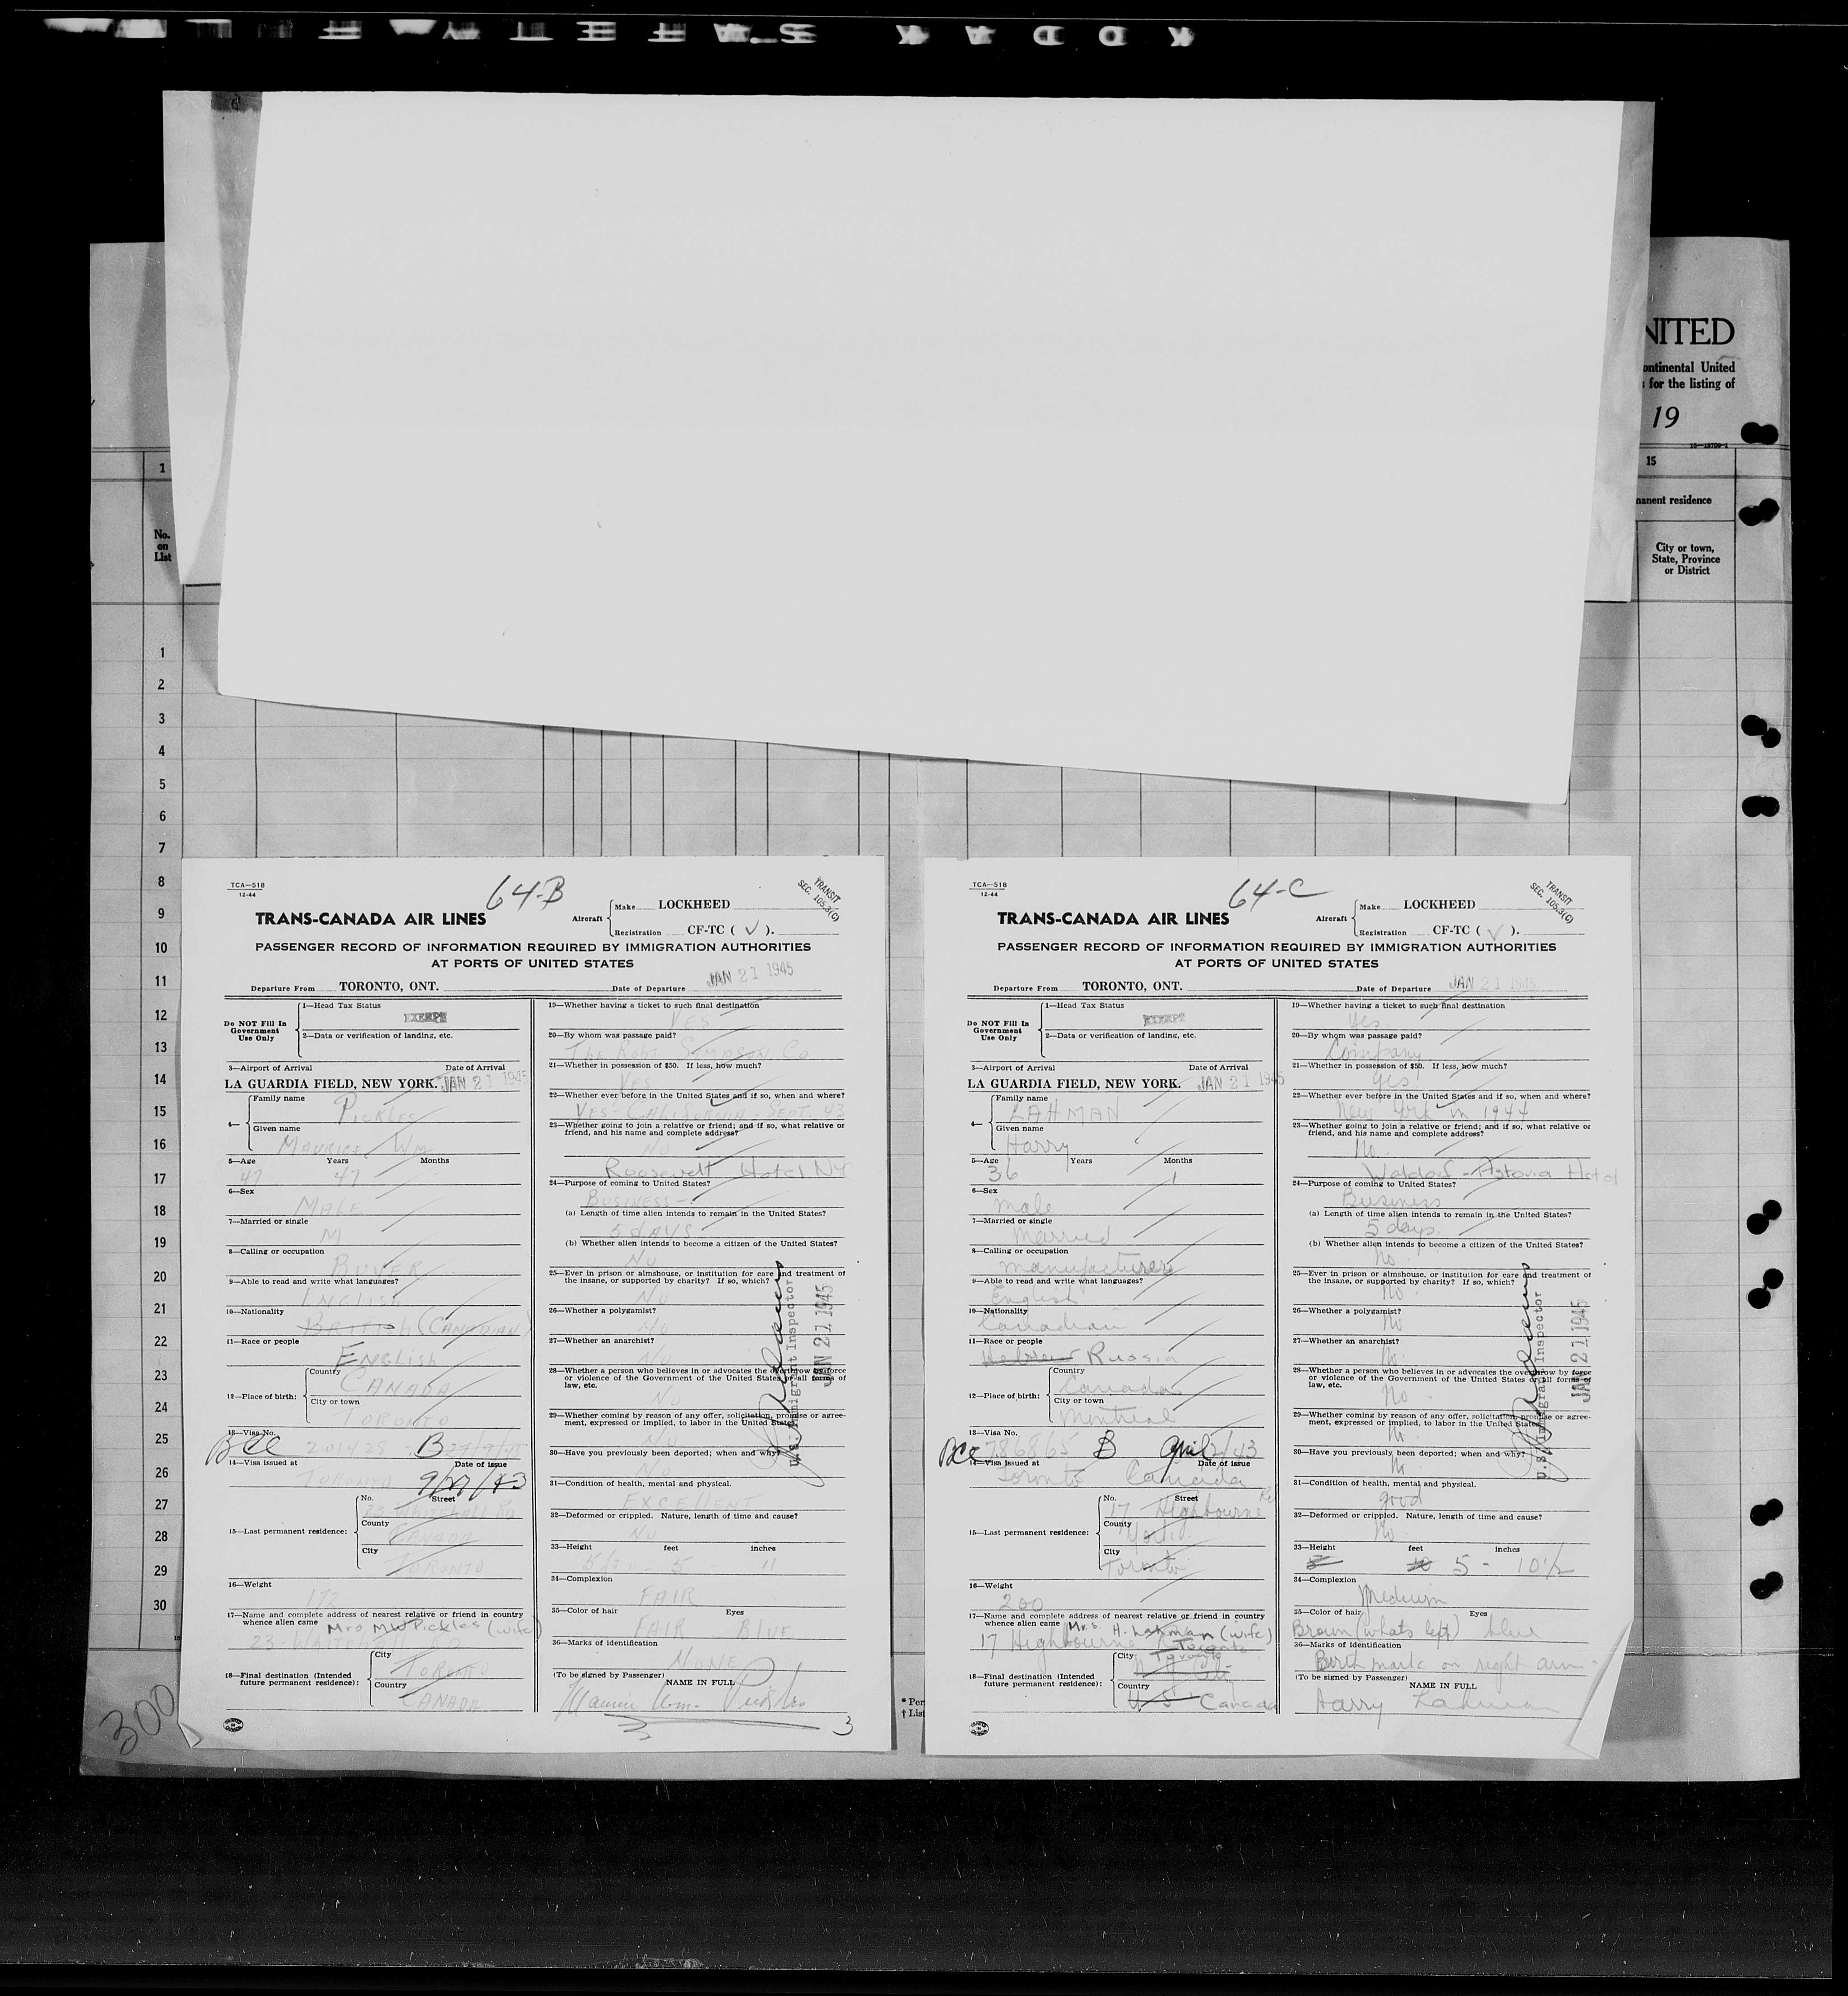 KODAK SAFETY
NITED
ontinental United
s for the listing of
19
16—18709-1
1
15
manent residence
No.
on
List
City or town,
State, Province
or District
1
2
3
4
5
6
7
8
9
10
11
12
13
14
15
16
17
18
19
20
21
22
23
24
25
26
27
28
29
30
300
* Per
† List
TCA—518
12-44
64-B
TRANSIT
SEC. 105.3(C)
TRANS-CANADA AIR LINES
Aircraft
Make LOCKHEED
Registration CF-TC ( ✓ ).
PASSENGER RECORD OF INFORMATION REQUIRED BY IMMIGRATION AUTHORITIES
AT PORTS OF UNITED STATES
Departure From TORONTO, ONT. Date of Departure JAN 21 1945
Do NOT Fill In
Government
Use Only
1—Head Tax Status
EXEMPT
2—Data or verification of landing, etc.
3—Airport of Arrival Date of Arrival
LA GUARDIA FIELD, NEW YORK. JAN 21 1945
4—
Family name
PICKLES
Given name
MAURICE WM
5—Age Years Months
47 47
6—Sex
MALE
7—Married or single
M
8—Calling or occupation
BUYER
9—Able to read and write what languages?
ENGLISH
10—Nationality
BRITISH (CANADIAN)
11—Race or people
ENGLISH
12—Place of birth:
Country
CANADA
City or town
TORONTO
13—Visa No.
BCC 201428 B
14—Visa issued at Date of issue
TORONTO 9/27/43
15—Last permanent residence:
No. Street
23 WHITEHALL RD
County
CANADA
City
TORONTO
16—Weight
172
17—Name and complete address of nearest relative or friend in country
whence alien came Mrs MW Pickles (wife)
23 WHITEHALL RD
18—Final destination (Intended
future permanent residence):
City
TORONTO
Country
CANADA
19—Whether having a ticket to such final destination
YES
20—By whom was passage paid?
THE ROBT. SIMPSON CO
21—Whether in possession of $50. If less, how much?
YES
22—Whether ever before in the United States and if so, when and where?
YES - CALIFORNIA - SEPT. 43
23—Whether going to join a relative or friend; and if so, what relative or
friend, and his name and complete address?
NO
Roosevelt Hotel NY
24—Purpose of coming to United States?
BUSINESS
(a) Length of time alien intends to remain in the United States?
5 DAYS
(b) Whether alien intends to become a citizen of the United States?
NO
25—Ever in prison or almshouse, or institution for care and treatment of
the insane, or supported by charity? If so, which?
NO
26—Whether a polygamist?
NO
27—Whether an anarchist?
NO
28—Whether a person who believes in or advocates the overthrow by force
or violence of the Government of the United States or all forms of
law, etc.
NO
29—Whether coming by reason of any offer, solicitation, promise or agree-
ment, expressed or implied, to labor in the United States?
NO
30—Have you previously been deported; when and why?
NO
31—Condition of health, mental and physical.
EXCELLENT
32—Deformed or crippled. Nature, length of time and cause?
NO
33—Height feet inches
5 11
34—Complexion
FAIR
35—Color of hair Eyes
FAIR BLUE
36—Marks of identification
NONE
(To be signed by Passenger) NAME IN FULL
Maurice Wm. Pickles
3
U.S. Immigrant Inspector
JAN 21 1945
TCA—518
12-44
64-C
TRANSIT
SEC. 105.3(C)
TRANS-CANADA AIR LINES
Aircraft
Make LOCKHEED
Registration CF-TC ( ✓ ).
PASSENGER RECORD OF INFORMATION REQUIRED BY IMMIGRATION AUTHORITIES
AT PORTS OF UNITED STATES
Departure From TORONTO, ONT. Date of Departure JAN 21 1945
Do NOT Fill In
Government
Use Only
1—Head Tax Status
EXEMPT
2—Data or verification of landing, etc.
3—Airport of Arrival Date of Arrival
LA GUARDIA FIELD, NEW YORK. JAN 21 1945
4—
Family name
LAHMAN
Given name
Harry
5—Age Years Months
36 1
6—Sex
male
7—Married or single
married
8—Calling or occupation
manufacturer
9—Able to read and write what languages?
English
10—Nationality
Canadian
11—Race or people
Hebrew Russia
12—Place of birth:
Country
Canada
City or town
Montreal
13—Visa No.
BCC 786865 B April 2/43
14—Visa issued at Date of issue
Toronto Canada
15—Last permanent residence:
No. Street
17 Highbourne Rd
County
York
City
Toronto
16—Weight
200
17—Name and complete address of nearest relative or friend in country
whence alien came Mrs. H. Lahman (wife)
17 Highbourne Toronto
18—Final destination (Intended
future permanent residence):
City Toronto
Country
U S Canada
19—Whether having a ticket to such final destination
Yes
20—By whom was passage paid?
Company
21—Whether in possession of $50. If less, how much?
Yes
22—Whether ever before in the United States and if so, when and where?
New York in 1944
23—Whether going to join a relative or friend; and if so, what relative or
friend, and his name and complete address?
No.
Waldorf-Astoria Hotel
24—Purpose of coming to United States?
Business
(a) Length of time alien intends to remain in the United States?
5 days
(b) Whether alien intends to become a citizen of the United States?
No
25—Ever in prison or almshouse, or institution for care and treatment of
the insane, or supported by charity? If so, which?
No
26—Whether a polygamist?
No
27—Whether an anarchist?
No.
28—Whether a person who believes in or advocates the overthrow by force
or violence of the Government of the United States or all forms of
law, etc.
No
29—Whether coming by reason of any offer, solicitation, promise or agree-
ment, expressed or implied, to labor in the United States?
No
30—Have you previously been deported; when and why?
No
31—Condition of health, mental and physical.
good
32—Deformed or crippled. Nature, length of time and cause?
No
33—Height feet inches
5 - 10 1/2
34—Complexion
Medium
35—Color of hair Eyes
Brown (whats left) blue
36—Marks of identification
Birth mark on right arm
(To be signed by Passenger) NAME IN FULL
Harry Lahman
U.S. Immigrant Inspector
JAN 21 1945